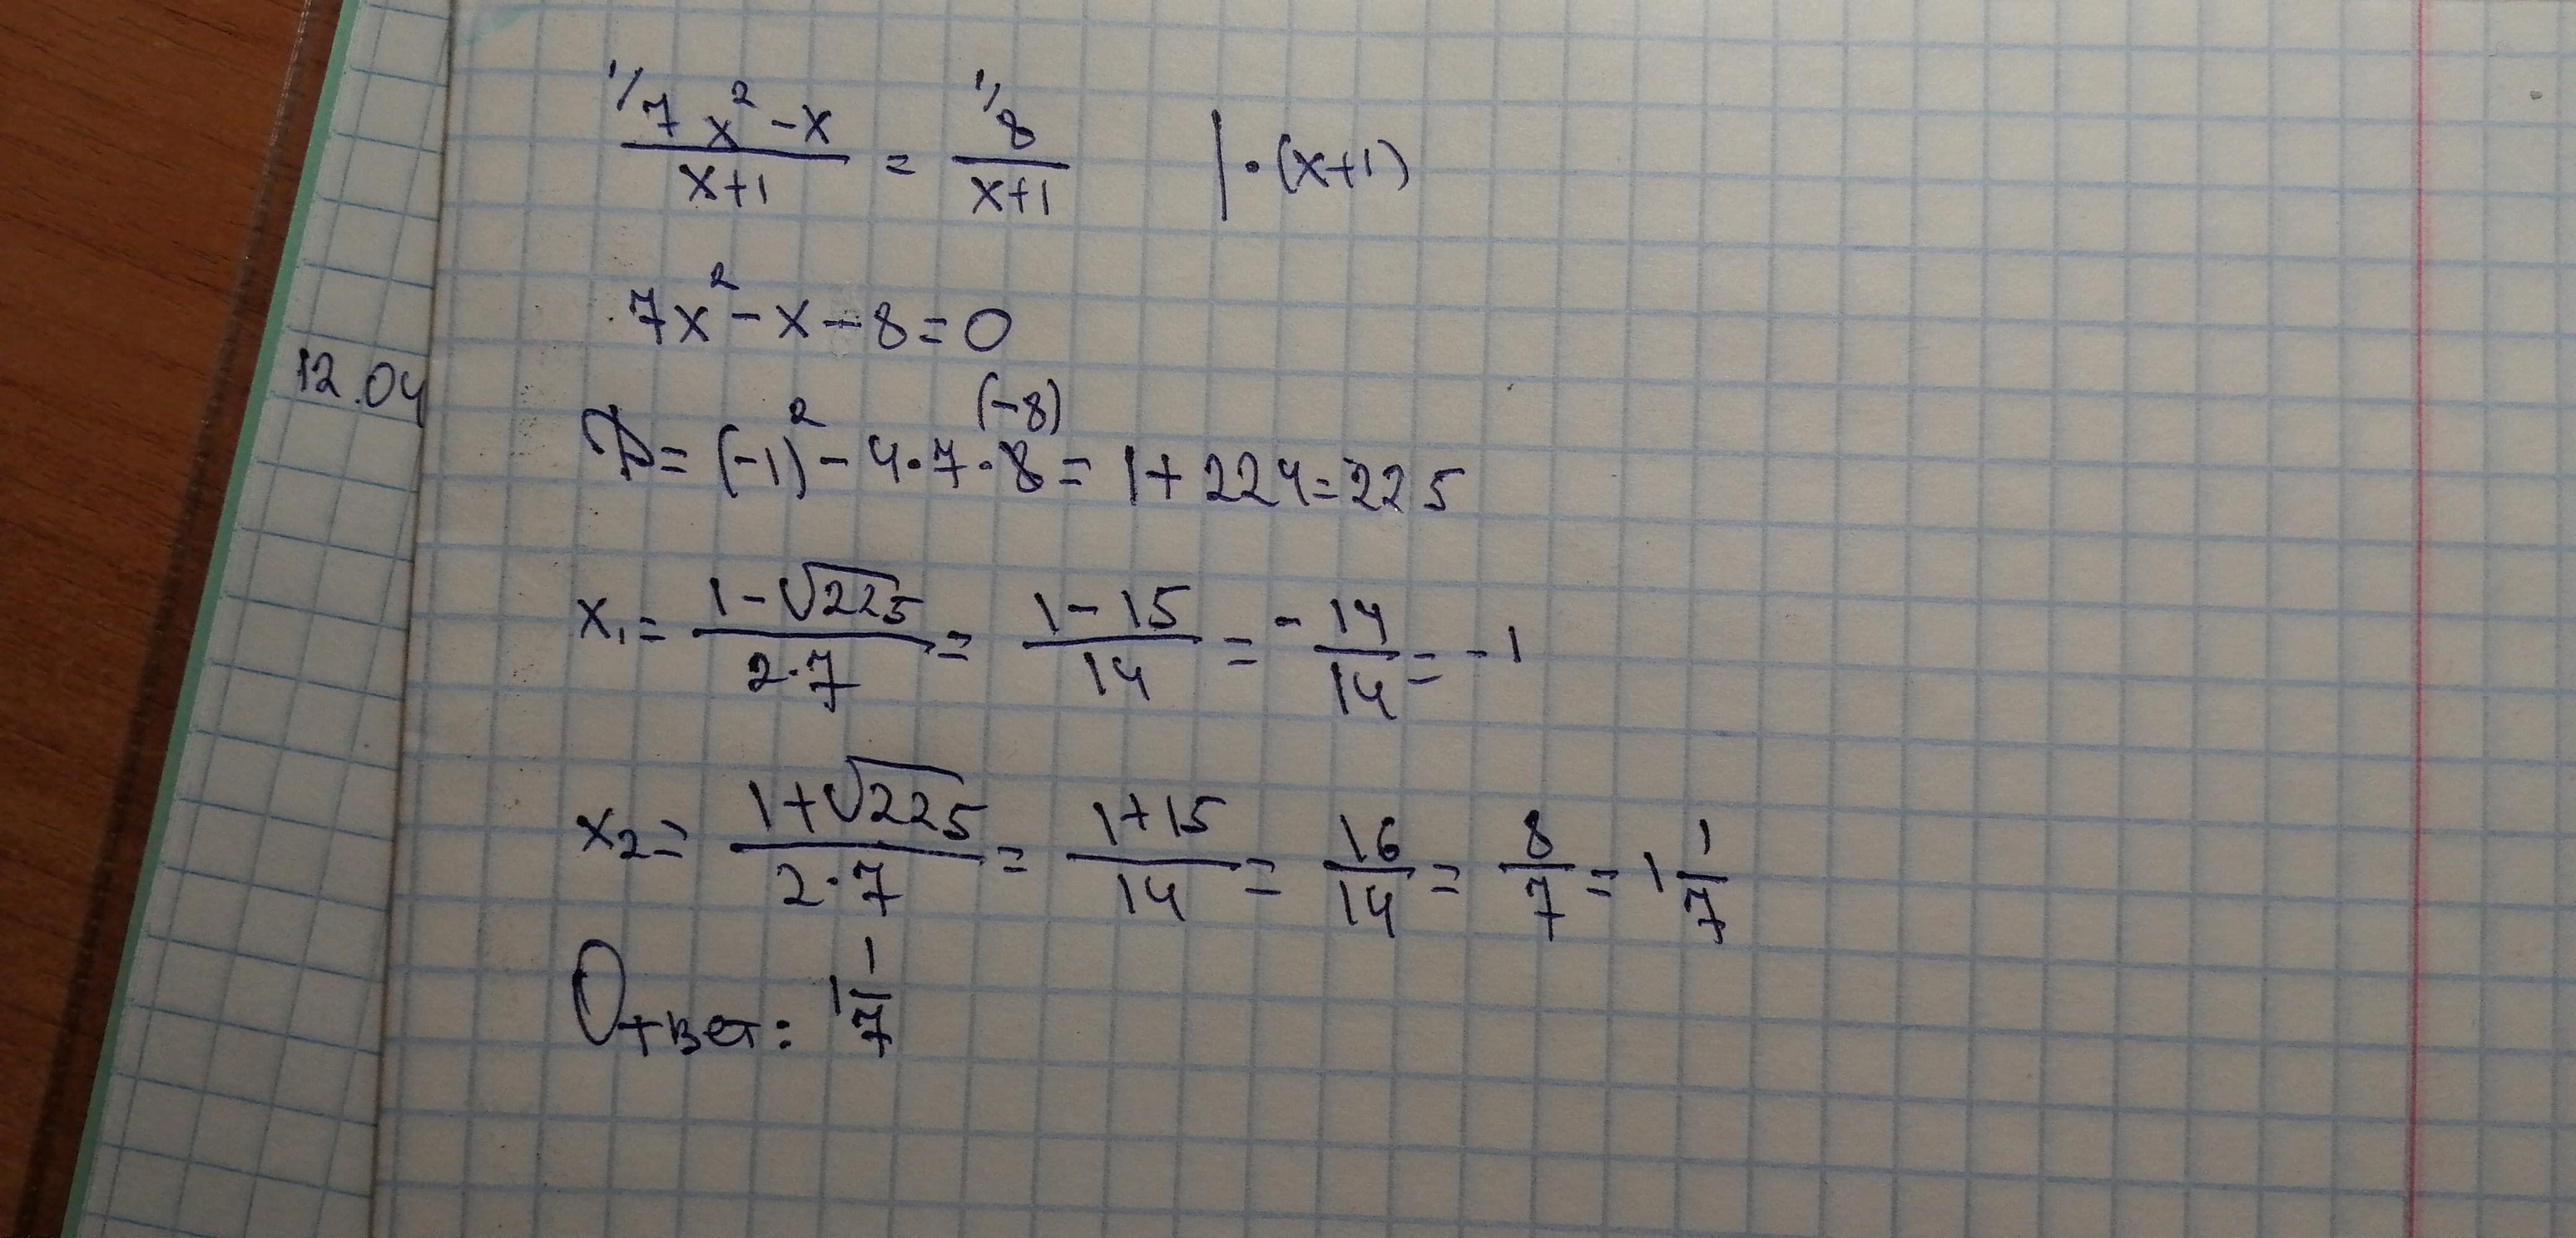 (7x² - x)/(x+1) = 8/(x+1) | · (x+1)
7x² - x - 8 = 0
12.04
D = (-1)² - 4·7·(-8) = 1 + 224 = 225
x₁ = (1 - √225)/(2·7) = (1 - 15)/14 = - 14/14 = -1
x₂ = (1 + √225)/(2·7) = (1 + 15)/14 = 16/14 = 8/7 = 1 1/7
Ответ: 1 1/7